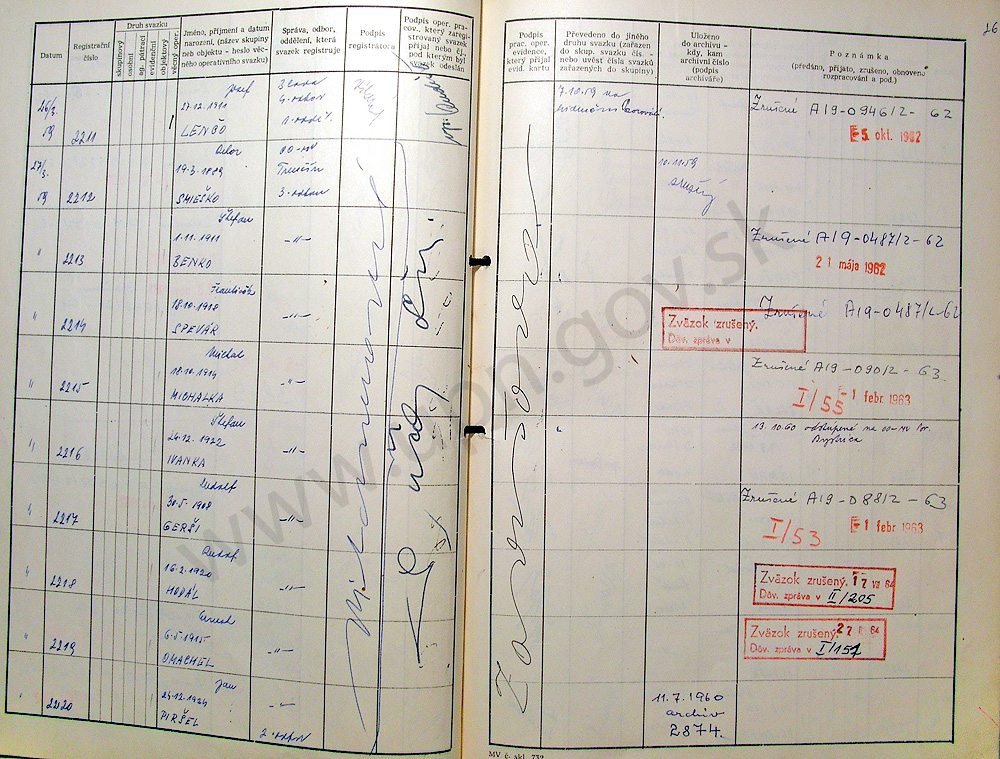 Datum
Registrační
číslo
Druh svazku
skupinový
osobní
ag. pátrací
evidenční
objektový
věcný oper.
Jméno, příjmení a datum
narození, (název skupiny
neb objektu - heslo věc-
ného operativního svazku)
Správa, odbor,
oddělení, která
svazek registruje
Podpis
registrátora
Podpis oper. pra-
cov., který zaregi-
strovaný svazek
přijal nebo čj.
pod kterým byl
svazek odeslán
26/3.
59
2211
Jozef
27-12-1911
LENČO
27/3.
59
2212
19-3-1889
SMIEŠKO
Trenčín
3. odbor
"
2213
Štefan
1-11-1911
BENKO
-"-
"
2214
František
18-10-1918
SPEVÁR
-"-
"
2215
Michal
18-10-1914
MICHALKA
-"-
"
2216
Štefan
26-12-1922
IVANKA
-"-
"
2217
Rudolf
30-5-1908
GERŠI
-"-
"
2218
Rudolf
16-2-1920
HODÁL
-"-
"
2219
6-5-1915
OMACHEL
-"-
"
2220
Jan
24-12-1924
PIRŠEL
-"-
2. odbor
Podpis
prac. oper.
evidence,
který přijal
evid. kartu
Převedeno do jiného
druhu svazku (zařazen
do skup. svazku čís. -
nebo uvést čísla svazků
zařazených do skupiny)
Uloženo
do archivu -
kdy, kam
archivní číslo
(podpis
archiváře)
Poznámka
(předáno, přijato, zrušeno, obnoveno
rozpracování a pod.)
26
7.10.59 na
Zrušené A19-0946/2-62
5. okt. 1962
10.11.59
Zrušené A19-0487/2-62
21 mája 1962
Zrušené A19-0487/2-62
Zväzok zrušený.
Dův. zpráva v
Zrušené A19-090/2-63
I/55
1 febr 1963
13.10.60 odstúpené na
Bystrica
Zrušené A19-088/2-63
I/53
1 febr 1963
Zväzok zrušený. 17 VII 64
Dův. zpráva v II/205
Zväzok zrušený. 27 64
Dův. zpráva v I/151
11.7.1960
archiv
2874.
MV č. skl. 732
www.upn.gov.sk